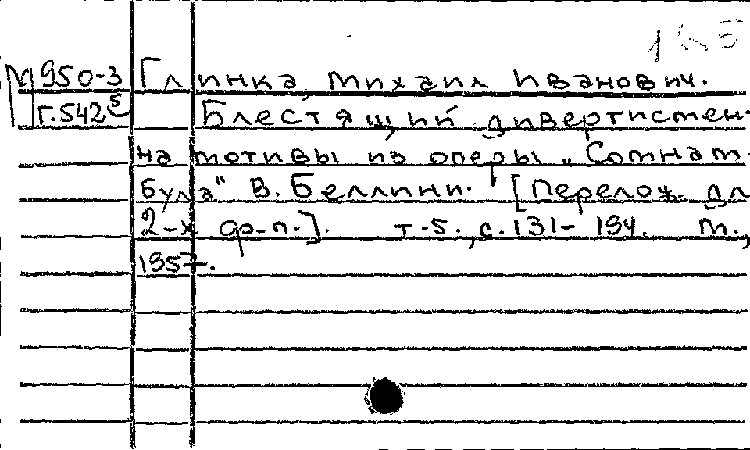 М950-3 Глинка, Михаил Иванович.
Г.542⁵ Блестящий дивертисмен
на мотивы из оперы „Сомнам-
була" В. Беллини. [Перелож. дл
2-х ф-п.]. т-5., с.131-194. М.,
1957.